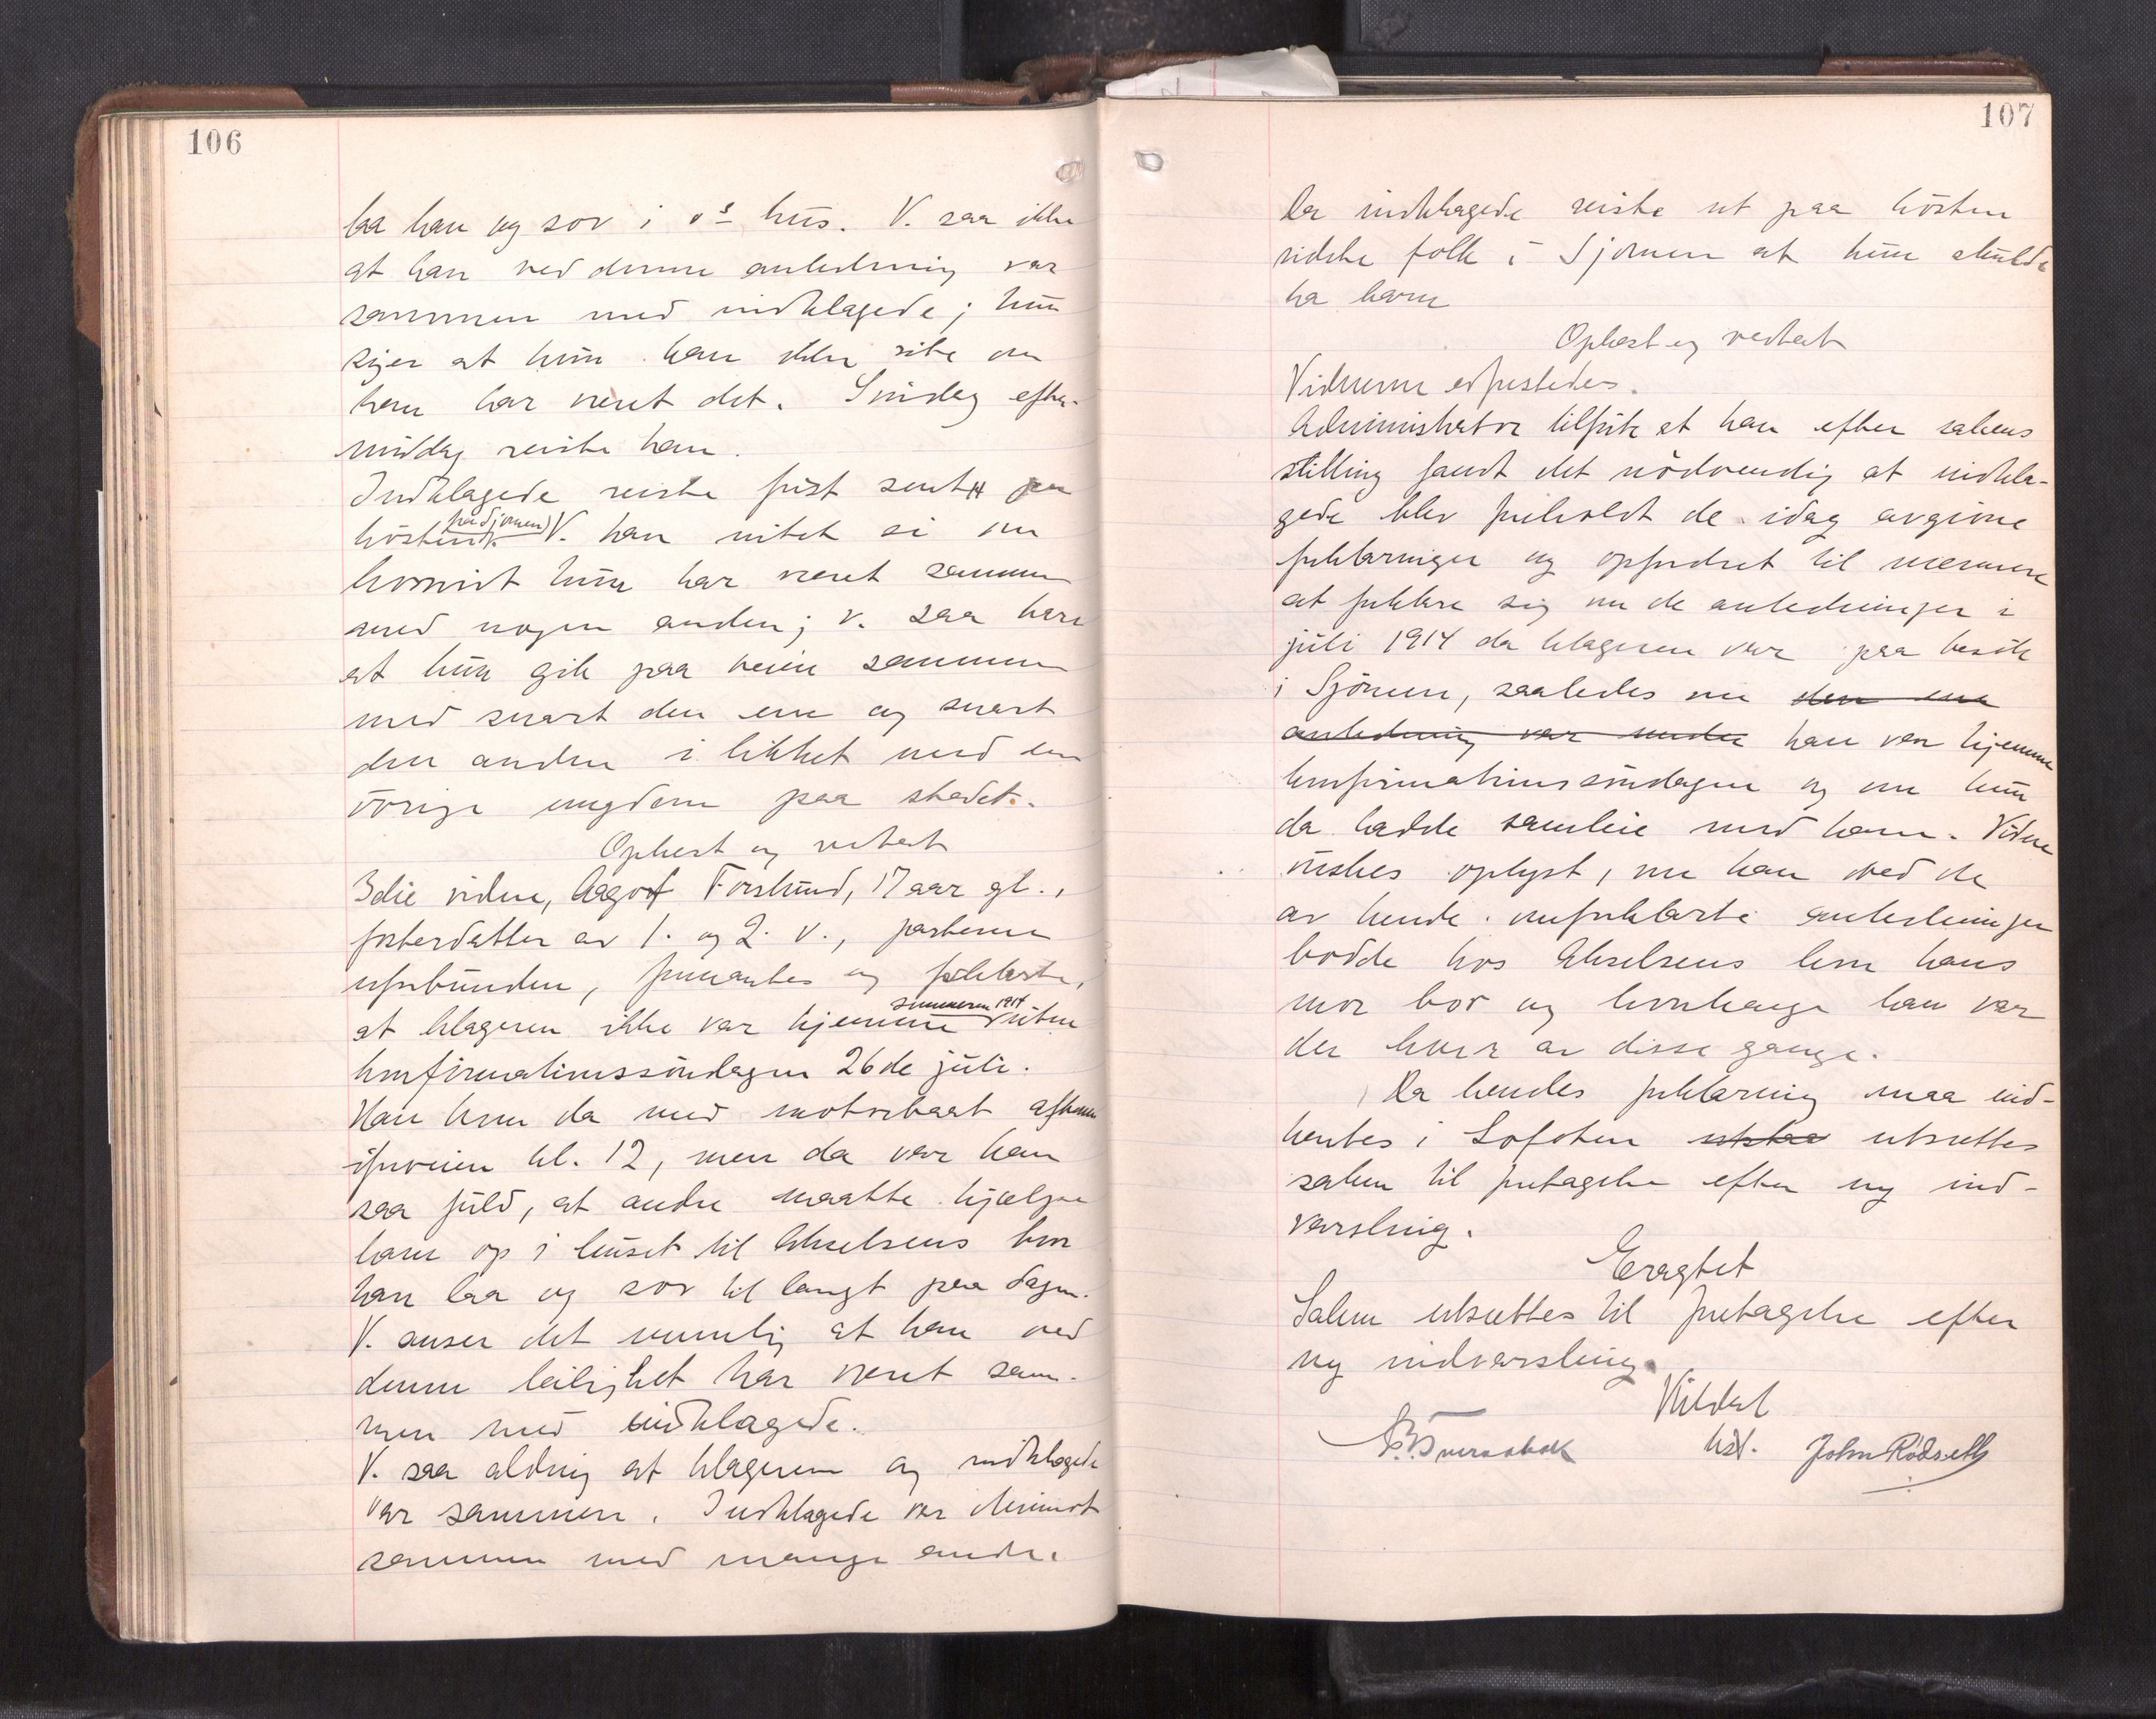 106
laa han og sov i v's hus. V. saa ikke
at han ved denne anledning var
sammen med indklagede; hun
sijer at hun kan ikke vite om
han har været det. Søndag efter-
middag reiste han.
Indklagede reiste først sent paa
høsten fra Sjonen. V. kan intet si om
hvorvidt hun har været sammen
med nogen anden; v. saa bare
at hun gik paa veien sammen
med snart den ene og snart
den anden i likhet med den
øvrige ungdom paa stedet.
Oplæst og vedtat
3die vidne, Aagot Forslund, 17 aar gl.,
fosterdatter av 1. og 2. v., parterne
uforbunden, formantes og forklarte,
at klageren ikke var hjemme sommeren 1914 uten
konfirmationssøndagen 26de juli.
Han kom da med motorbaat aftenen
iforveien kl. 12, men da var han
saa fuld, at andre maatte hjælpe
ham op i huset til Akselsens hvor
han laa og sov til langt paa dagen.
V. anser det umulig at han ved
denne leilighet har været sam-
men med indklagede.
V. saa aldrig at klageren og indklagede
var sammen. Indklagede var derimot
sammen med mange andre.
107
Da indklagede reiste ut paa høsten
visste folk i Sjonen at hun skulde
ha barn
Oplæst og vedtat
Vidnerne edfæstedes.
Administrator tilførte at han efter sakens
stilling fandt det nødvendig at indkla-
gede blev foreholdt de idag avgivne
forklaringer og opfordret til nærmere
at forklare sig om de anledninger i
juli 1914 da klageren var paa besøk
i Sjonen, saaledes om den ene
anledning var under han var hjemme
konfirmationssøndagen og om hun
da hadde samleie med ham. Videre
ønskes oplyst, om han ved de
av hende omforklarte anledninger
bodde hos Akselsens hvor hans
mor bor og hvorlænge han var
der hver av disse gange.
Da hendes forklaring maa ind-
hentes i Lofoten utsættes
saken til foretagelse efter ny ind-
varsling.
Eragtet
Saken utsættes til foretagelse efter
ny indvarsling.
John Rødseth